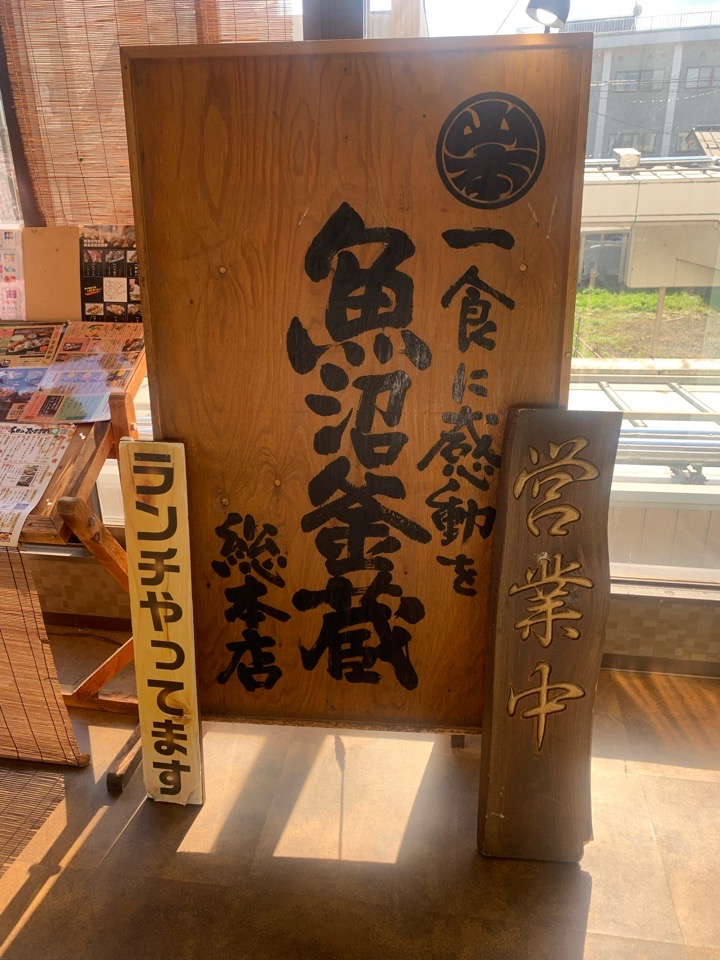 山本
一食に感動を
魚沼釜蔵
総本店
営業中
ランチやってます